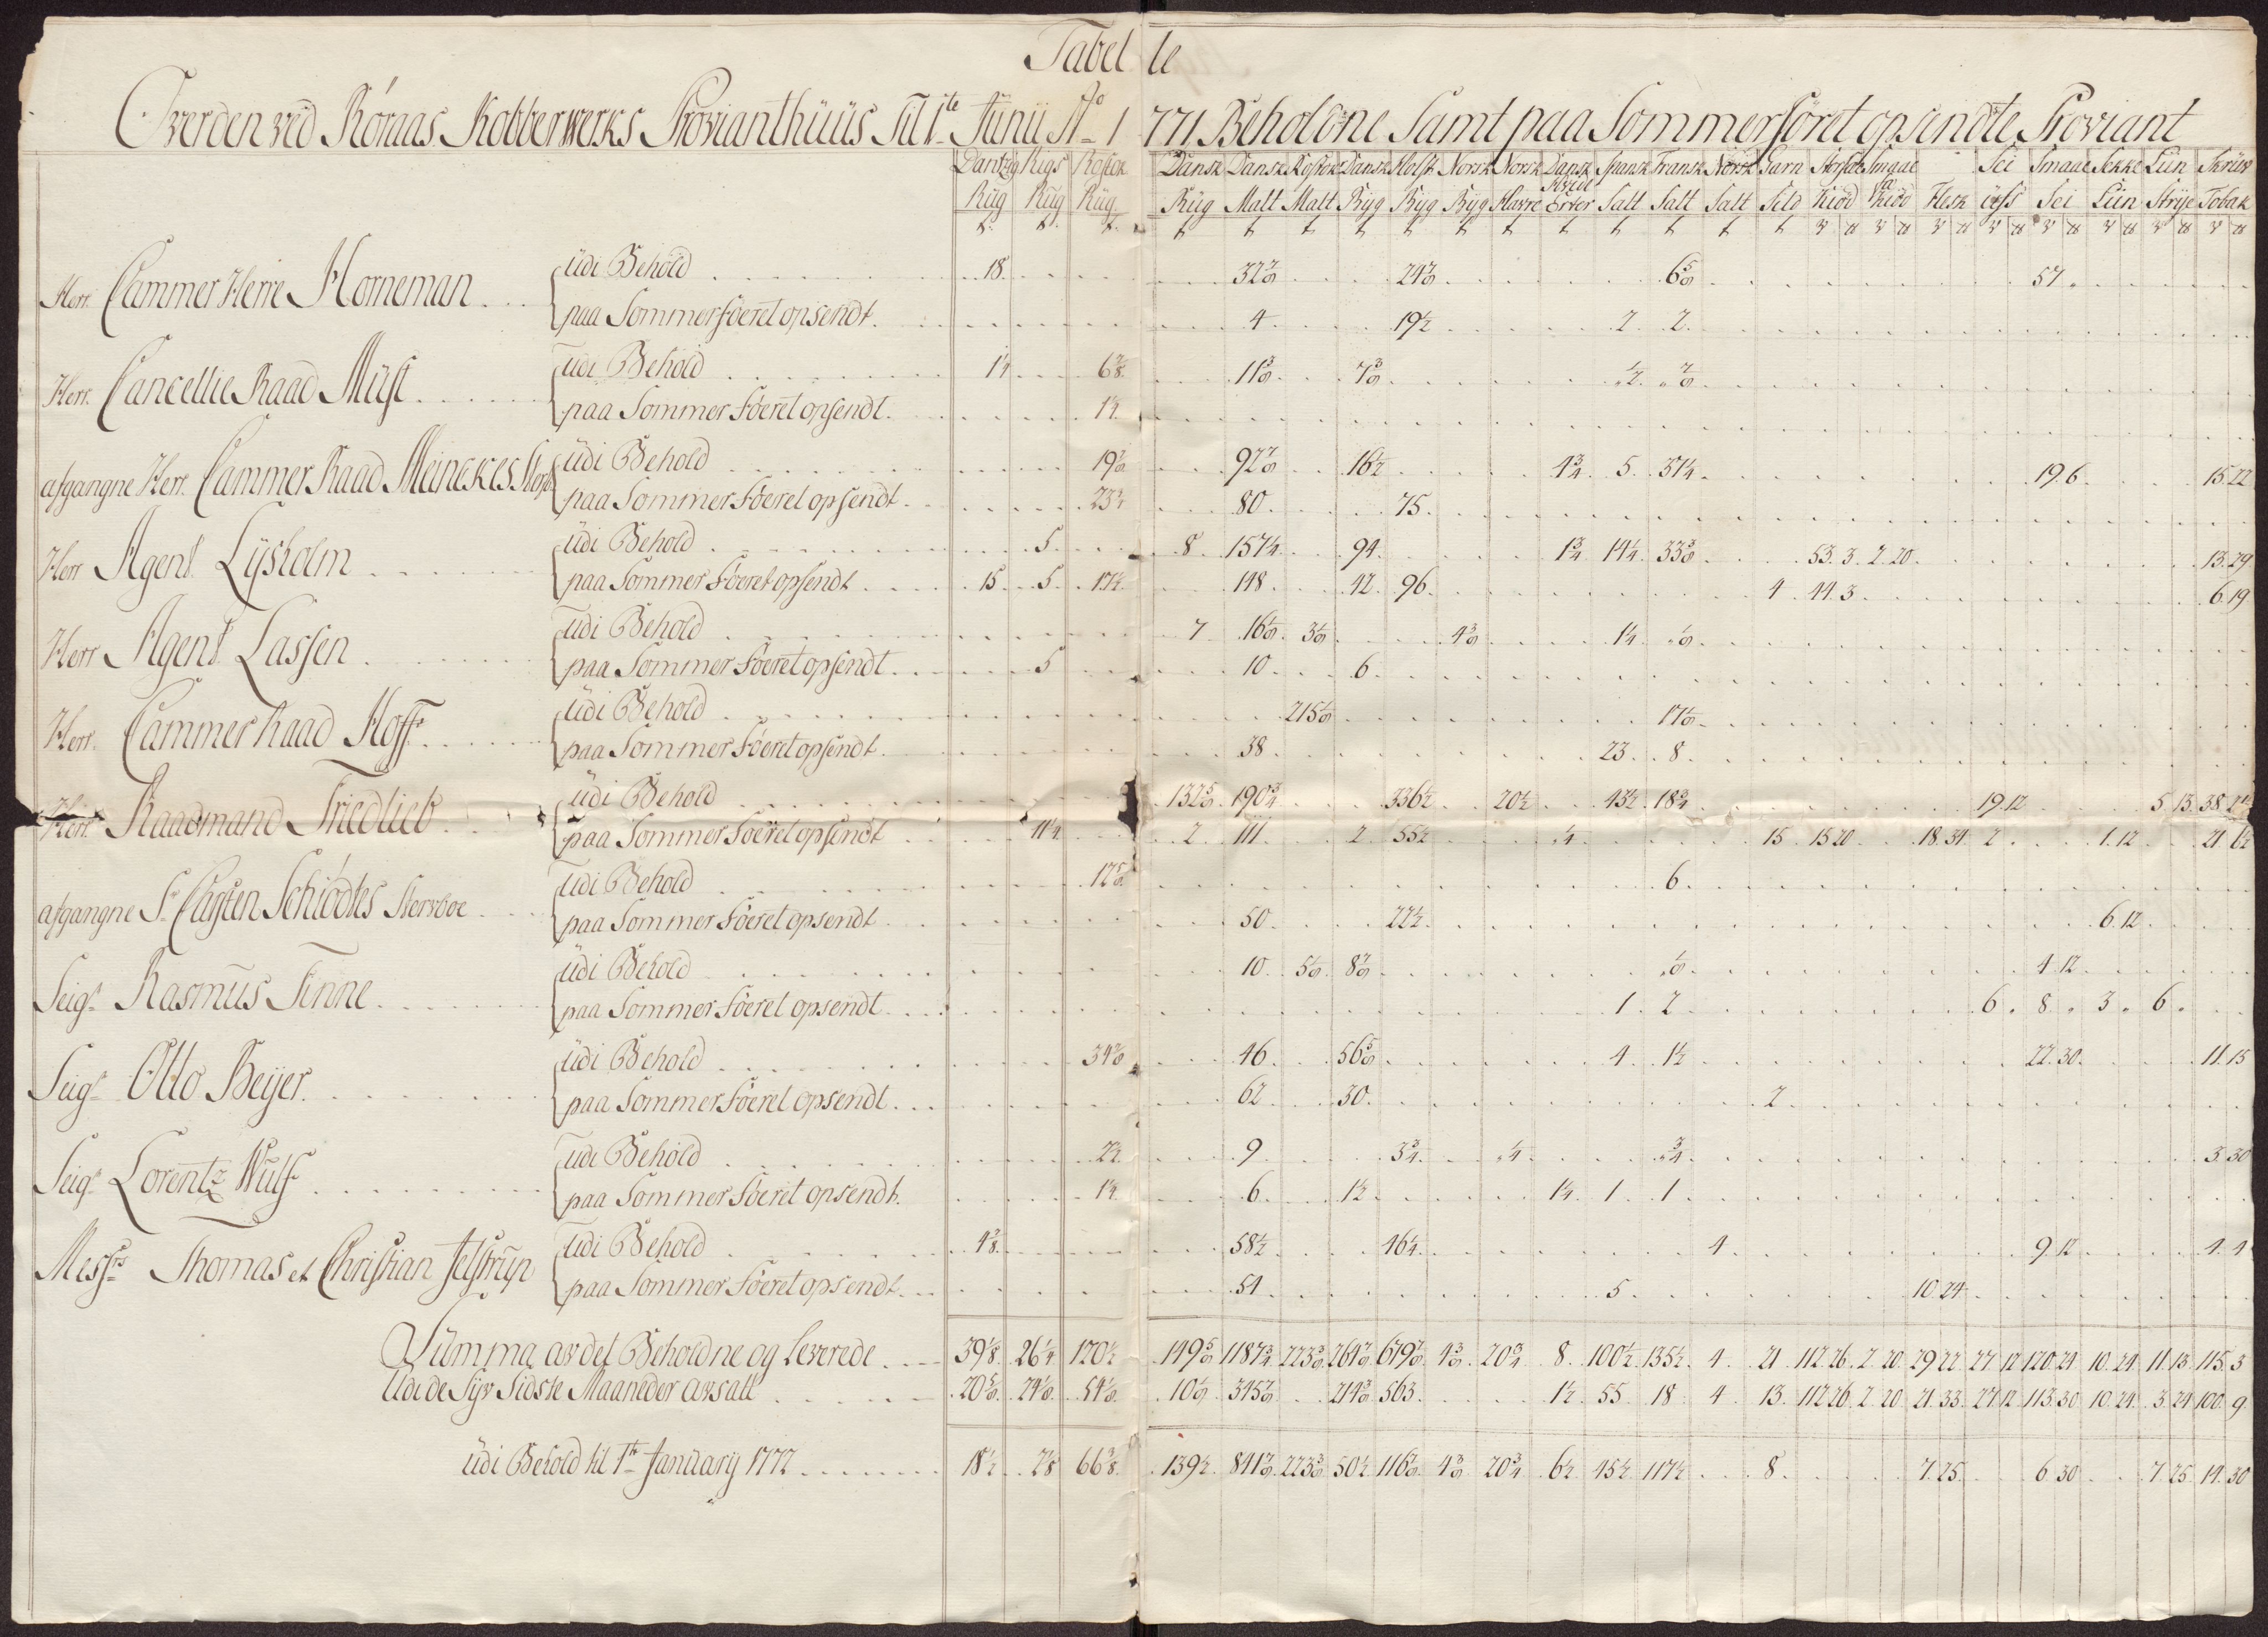 Tabelle
Overden ved Röraas Kobberwerks Provianthüüs Til 1te Junii Ao 1771 Beholdne Samt paa Sommerföret opsendte Proviant
Dantzig Rigs Rostok Dansk Dansk Rostok Dansk Holst Norsk Norsk Dansk Spansk Fransk Norsk Garn Storfæe Smaae Sei Smaae Hekle Liin Skrüv
Rüg Rüg Rüg Rüg Malt Malt Byg Byg Byg Havre Erter Salt Salt Salt Sild Kiöd Kiöd Flesk Sei Liin Strije Tobak
Herr Cammer Herre Horneman
üdi Behold 18 32 7/8 24 7/8 6 5/8 57
paa Sommerföeret opsendt 4 19 1/2 2 2
Herr Cancellie Raad Müst
üdi Behold 11 3/8 7 3/8 1/2 7/8
paa Sommer Föeret opsendt
afgangne Herr Cammer Raad Meinckes
üdi Behold 16 1/2 4 3/4 5 51 1/4 19 6 15 22
paa Sommer Föeret opsendt 80 75
Herr Agent Lÿsholm
üdi Behold 5 8 157 1/4 94 1 3/4 14 1/4 33 3/8 53 3 2 20 13 29
paa Sommer Föeret opsendt 15 5 17 1/4 148 42 96 4 44 3 6 19
Herr Agent Lassen
üdi Behold 7 16 1/8 3 1/8 4 3/8 1 1/4 1/8
paa Sommer Föeret opsendt 5 10 6
Herr Cammer Raad Hoff
üdi Behold 215 1/8 17 1/8
paa Sommer Föeret opsendt 38 23 8
Herr Raadmand Friedlieb
üdi Behold 132 5/8 190 3/4 336 1/2 20 1/2 43 1/2 18 3/4 19 12 5 13 38
paa Sommer Föeret opsendt 11 1/4 2 111 2 55 1/2 1/4 15 15 20 18 34 2 1 12 21 1 1/2
afgangne Sr Carsten Schiödtes Stervboe
üdi Behold 12 5/8 6
paa Sommer Föeret opsendt 50 22 1/2 6 12
Seigr Rasmus Finne
üdi Behold 10 5 1/8 8 7/8 1/8 4 12
paa Sommer Föeret opsendt 1 2 6 8 3 6
Seigr Otto Beyer
üdi Behold 34 46 56 5/8 4 1 1/2 22 30 11 15
paa Sommer Föeret opsendt 62 30 2
Seigr Lorentz Wulf
üdi Behold 2 1/2 9 3 3/4 1/4 3/4 3 30
paa Sommer Föeret opsendt 6 1 1/2 1 1/4 1 1
Messrs Thomas et Christian Jelstrup
üdi Behold 4 3/8 58 1/2 46 1/4 4 9 12 4 4
paa Sommer Föeret opsendt 54 5 10 24
Summa av det Beholdne og Leverede 39 1/8 26 1/4 120 1/2 149 5/8 1187 3/4 223 3/8 264 7/8 679 7/8 4 3/8 20 3/4 8 100 1/2 135 1/2 4 21 112 26 2 20 29 22 27 12 120 24 10 24 11 13 115 3
Udi de Syv Sidste Maaneder avsatt 20 5/8 54 1/8 10 1/8 345 7/8 214 3/8 563 1 1/2 55 18 4 13 112 26 2 20 21 33 27 12 113 30 10 24 3 24 100 9
üdi Behold til 1te January 1772 18 1/2 66 3/8 139 1/2 841 7/8 223 3/8 50 1/2 116 7/8 4 3/8 20 3/4 6 1/2 45 1/2 117 1/2 8 7 25 6 30 7 25 14 30